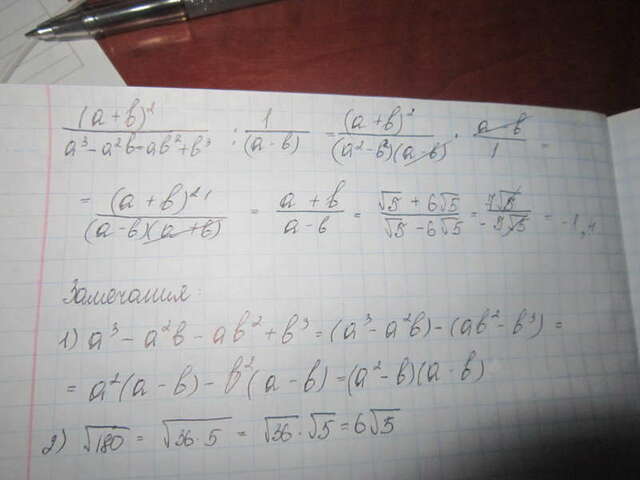 (a+b)²/(a³-a²b-ab²+b³) : 1/(a-b) = (a+b)²/((a²-b²)(a-b)) · (a-b)/1 =
= (a+b)²/((a-b)(a+b)) = (a+b)/(a-b) = (√5+6√5)/(√5-6√5) = 7√5/(-5√5) = -1,4
Замечания:
1) a³-a²b-ab²+b³=(a³-a²b)-(ab²-b³)=
= a²(a-b)-b²(a-b)=(a²-b)(a-b)
2) √180 = √(36·5) = √36·√5=6√5